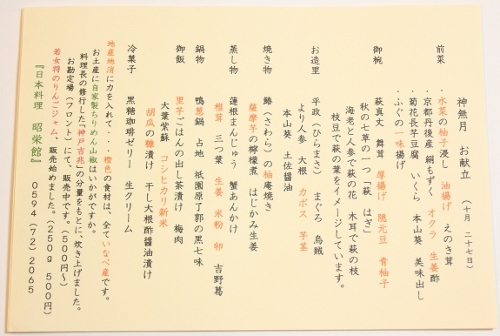 神無月 お献立 （十月 二十七日）
前菜
・水菜の柚子浸し 油揚げ えのき茸
・京都丹後産 絹もずく オクラ 生姜酢
・菊花長芋豆腐 いくら 本山葵 美味出し
・ふぐの一味揚げ
御椀
萩真丈 舞茸 厚揚げ 隠元豆 青柚子
秋の七草の一つ 萩（はぎ）
海老と人参で萩の花 木耳で萩の枝
枝豆で萩の葉をイメージしています。
お造里
平政（ひらまさ） まぐろ 烏賊
より人参 大根 カボス 芋茎
本山葵 土佐醤油
焼き物
鰆（さわら）の柚庵焼き
薩摩芋の檸檬煮 はじかみ生姜
蒸し物
蓮根まんじゅう 蟹あんかけ
椎茸 三つ葉 生姜 米粉 卵 吉野葛
鍋物
鴨葱鍋 占地 祇園原了郭の黒七味
御飯
里芋ごはんの出し茶漬け 梅肉
大葉紫蘇 コシヒカリ新米
胡瓜の糠漬け 干し大根酢醤油漬け
冷菓子
黒糖珈琲ゼリー 生クリーム
地産地消に力を入れて・・・橙色の食材は、全ていなべ産です。
お土産に自家製ちりめん山椒はいかがですか。
料理長の修行した「神戸吉兆」の分量をもとに、炊き上げました。
お勘定場（フロント）にて、販売中です。（５００円～）
若女将のりんごジャム、販売始めました。（２５０ｇ ５００円）
『日本料理 昭栄館』 ０５９４（７２）２０６５